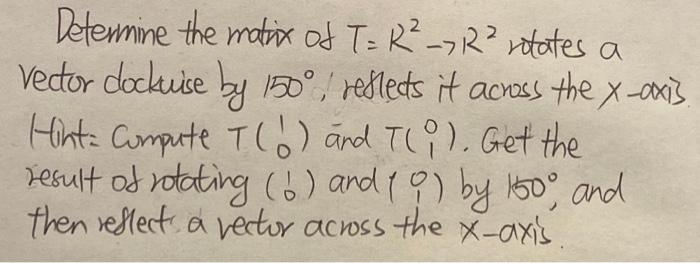 Determine the matrix of T: R² → R² rotates a
vector clockwise by 150°, reflects it across the x-axis.
Hint: Compute T(1 0) and T(0 1). Get the
result of rotating (1 0) and (0 1) by 150°, and
then reflect a vector across the x-axis.